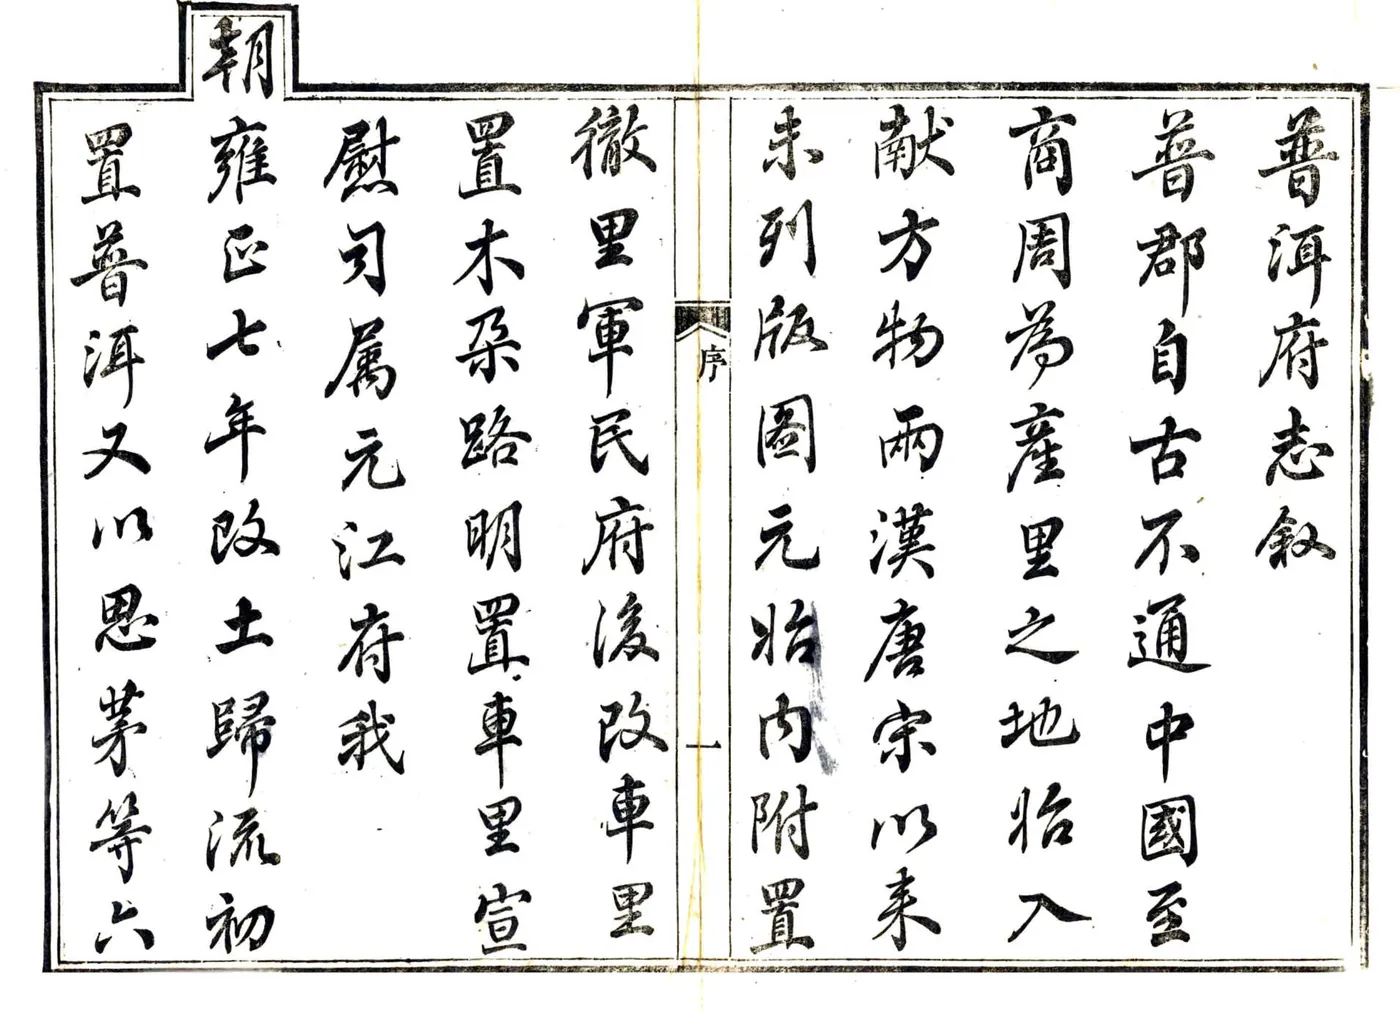 普洱府志叙
普郡自古不通中國至
商周為產里之地始入
献方物兩漢唐宗以来
未列版圖元始内附置
序
一
徹里軍民府後改車里
置木朵路明置車里宣
慰司属元江府我
朝雍正七年改土歸流初
置普洱又以思茅等六